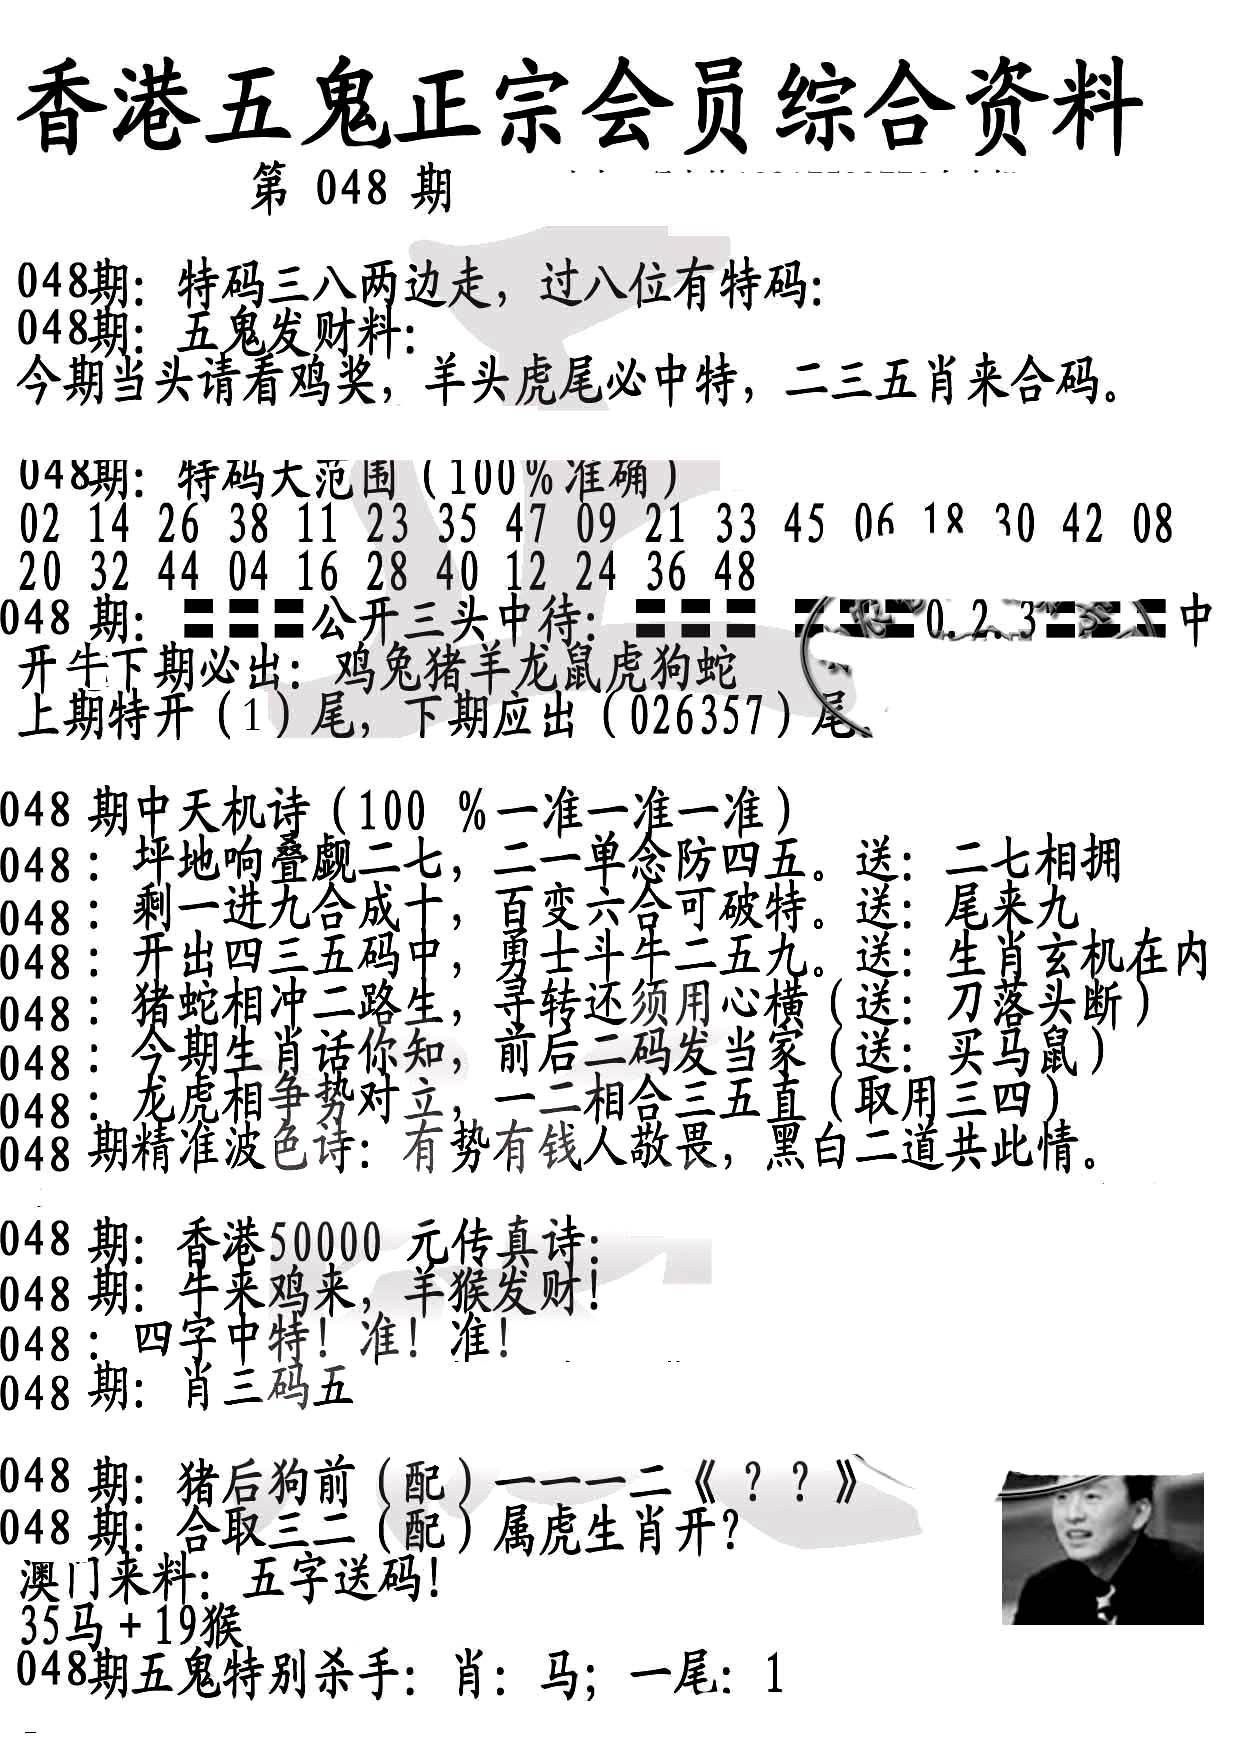 香港五鬼正宗会员综合资料
第 048 期
048期：特码三八两边走，过八位有特码：
048期：五鬼发财料：
今期当头请看鸡奖，羊头虎尾必中特，二三五肖来合码。
048期：特码大范围（100%准确）
02 14 26 38 11 23 35 47 09 21 33 45 06 18 30 42 08
20 32 44 04 16 28 40 12 24 36 48
048 期：〓〓〓公开三头中待：〓〓〓 〓〓〓0.2.3〓〓〓中
开牛下期必出：鸡兔猪羊龙鼠虎狗蛇
上期特开（1）尾，下期应出（026357）尾。
048 期中天机诗（100 %一准一准一准）
048：坪地响叠觑二七，二一单念防四五。送：二七相拥
048：剩一进九合成十，百变六合可破特。送：尾来九
048：开出四三五码中，勇士斗牛二五九。送：生肖玄机在内
048：猪蛇相冲二路生，寻转还须用心横（送：刀落头断）
048：今期生肖话你知，前后二码发当家（送：买马鼠）
048：龙虎相争势对立，一二相合三五直（取用三四）
048 期精准波色诗：有势有钱人敬畏，黑白二道共此情。
048 期：香港50000 元传真诗：
048 期：牛来鸡来，羊猴发财！
048：四字中特！准！准！
048 期：肖三码五
048 期：猪后狗前（配）一一一二《？？》
048 期：合取三二（配）属虎生肖开？
澳门来料：五字送码！
35马+19猴
048期五鬼特别杀手：肖：马；一尾：1